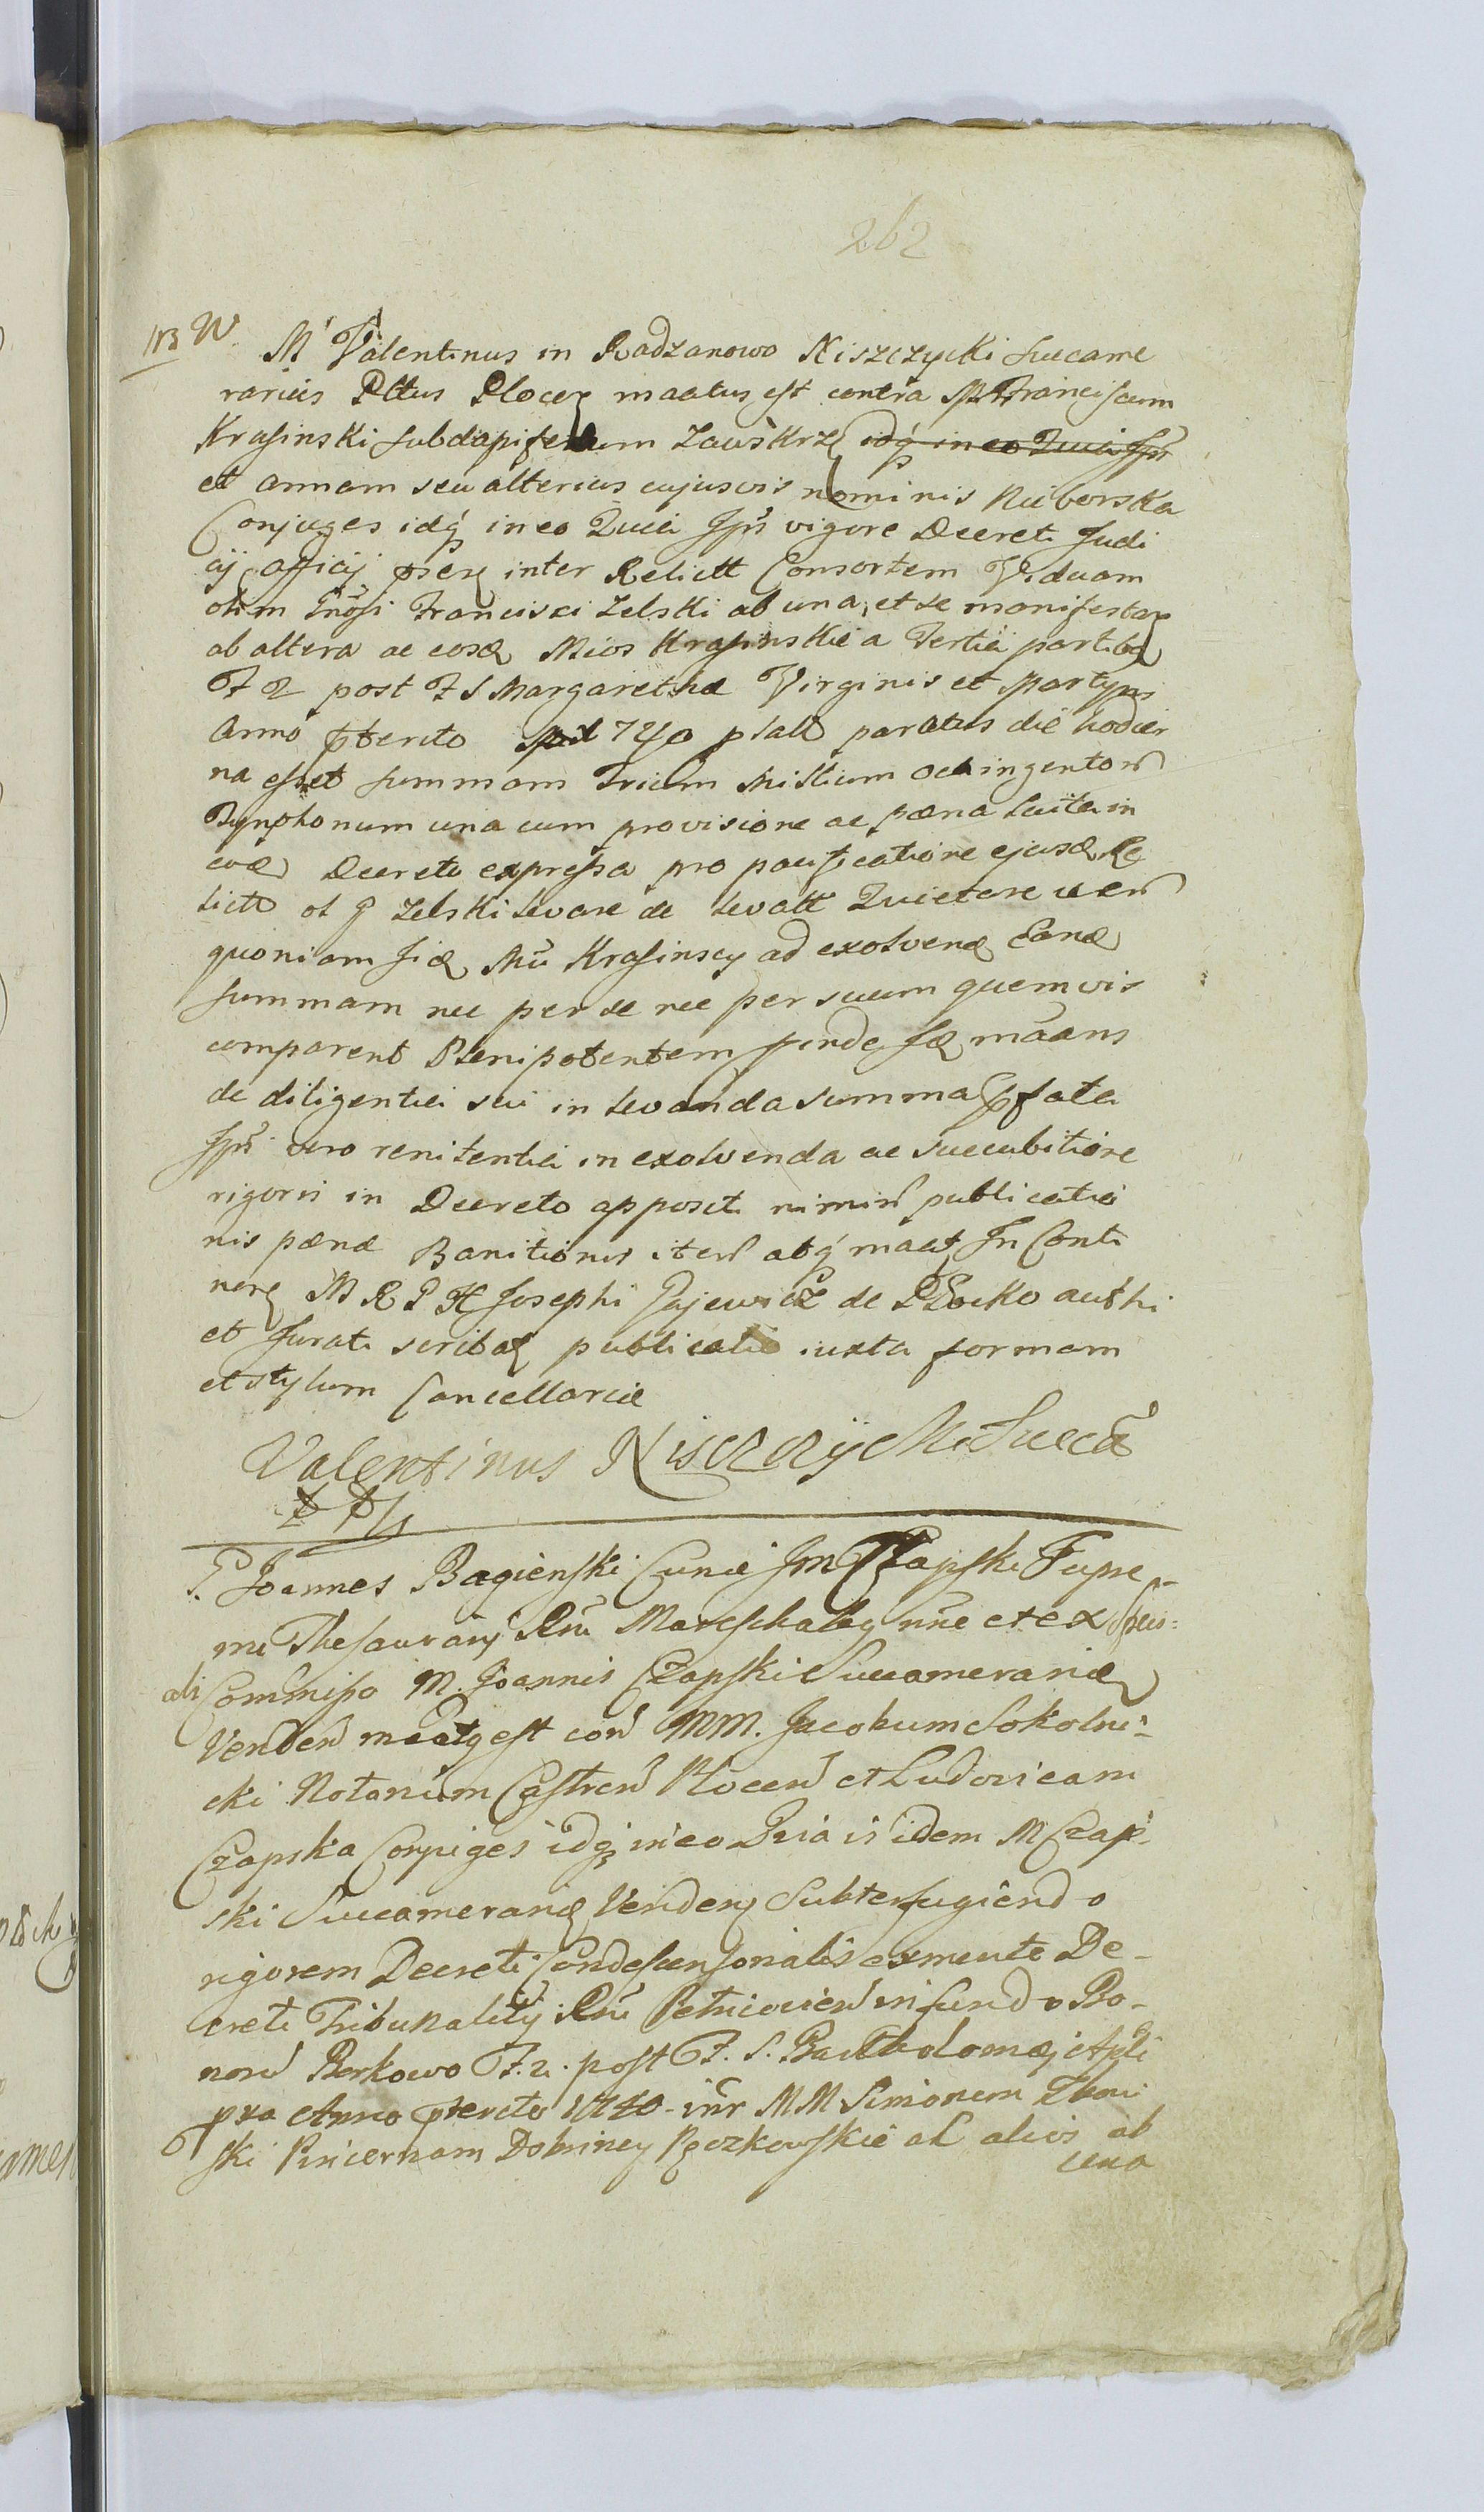 262
NB W.
M Valentinus in Radzanowo Niszczycki Succame
rarius Pltus Plocen maatus est contra M Franciscum
Krasinski subdapiferum Zawskrz idq in eo Quia Ipsi
et Annam seu alterius cujusvis nominis Nieborska
Conjuges idq in eo Quia Ipsi vigore Decreti Judi
cij officij psen inter Relictt Consortem Viduam
olim Gnosi Francisci Zelski ab una, et se manifestan
ab altera ac eosd Mcos Krasinskie a Tertia partibq
F 2 post F S Margarethæ Virginis et Martyris
Anno pterito 1740 platt paratus die hodier
na esset summam Trium Millium Octingentorum
Tynphonum una cum provisione ac pæna luita in
eod Decreto expressa pro pacificatione ejusd Re
lictt ol G Zelski levare de levatt Quietare
quoniam iid Mci Krasinscy ad exolvend Eand
summam nec per se nec per suum quemvis
comparent Plenipotentem proinde se maans
de diligentia sui in levanda summa pfata
Ipsi vero renitentia in exolvenda ac succubitione
rigoris in Decreto appositi nimir publicatio
nis pænæ Banitionis iter atq maat In Conti
nen M R P H Josephi Gajewicz de Plocko authi
et Jurati scribæ publicatio iuxta formam
et stylum Cancellariæ
Valentinus Niszczycki Succa
P P
G. Joannes Bagienski Curiæ Jm Czapski Supre-
mi Thesaurarij Rni Mareschalcq nne et ex speci-
ali Commisso M. Joannis Czapski Succamerarid
Venden maatq est con MM. Jacobum Sokolni-
cki Notarium Castren Plocen et Ludovicam
Czapska Conjuges idq in eo Quia is idem M Czap-
ski Succamerarid Venden Subterfugiendo
rigorem Decreti Condescensorialis ex mente De-
creti Tribunalitij Rni Petricovien in fundo Bo-
nor Borkowo F. 2. post F. S. Bartholomæj Apli
pro Anno pterito 1740 inr MM Simonem
ski Pincernam Dobrinen Pęczkowskie al alios ab
una